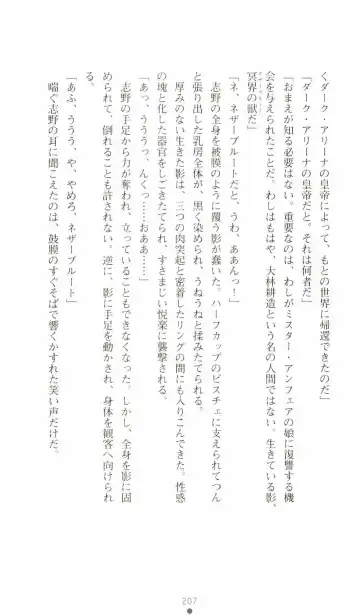 くダーク・アリーナの皇帝によって、もとの世界に帰還できたのだ」
「ダーク・アリーナの皇帝だと。それは何者だ」
「おまえが知る必要はない。重要なのは、わしがミスター・アンフェアの娘に復讐する機
会を与えられたことだ。わしはもはや、大林耕造という名の人間ではない。生きている影、
冥界の獣だ」
「ネ、ネザーブルートだと、うわ、ああんっ！」
志野の全身を被膜のように覆う影が蠢いた。ハーフカップのビスチェに支えられてつん
と張り出した乳房全体が、黒く染められ、うねうねと揉みたてられる。
厚みのない生きた影は、三つの肉突起と密着したリングの間にも入りこんできた。性感
の塊と化した器官をしごきたてられ、すさまじい悦楽に襲撃される。
「あっ、うううっ、んくっ……おああ……」
志野の手足から力が奪われ、立っていることもできなくなった。しかし、全身を影に固
められて、倒れることも許されない。逆に、影に手足を動かされ、身体を観客へ向けられ
る。
「あふ、ううう、や、やめろ、ネザーブルート」
喘ぐ志野の耳に聞こえたのは、鼓膜のすぐそばで響くかすれた笑い声だけだ。
207